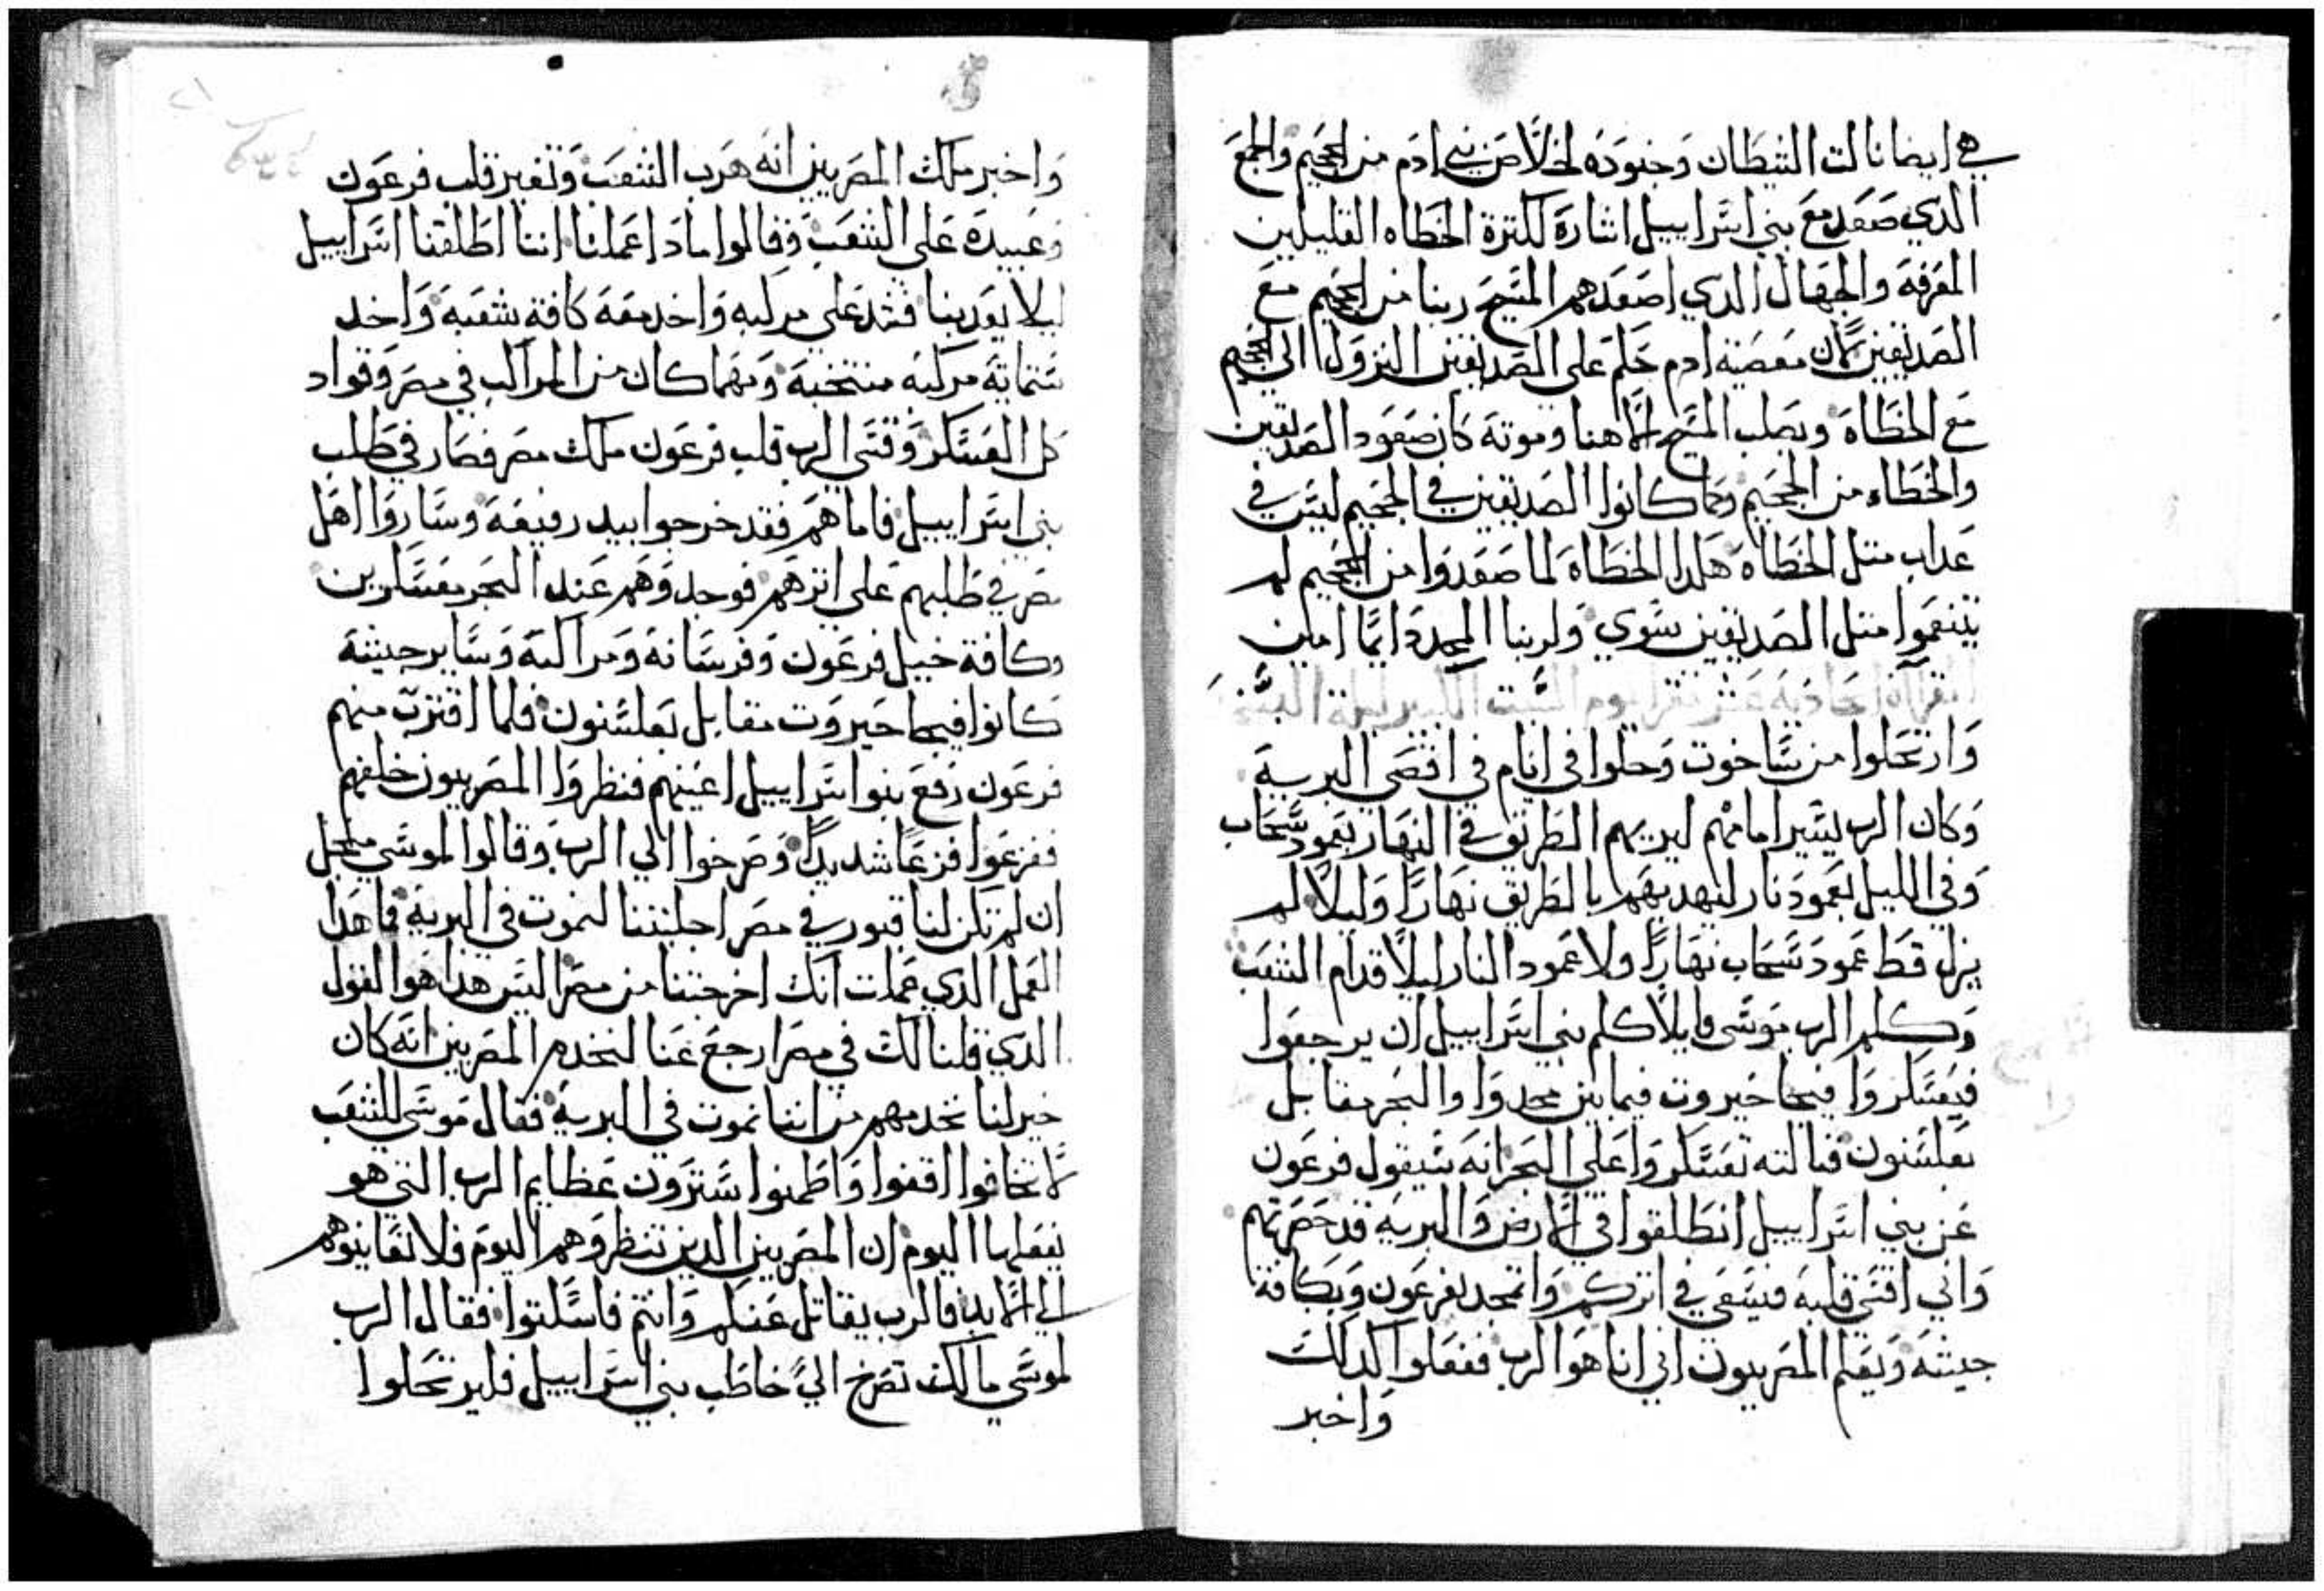 هي ايضا نالت الشيطان وجنوده لخلاص بني ادم من الجحيم والجمع
الدي صعد مع بني اسراييل اشارة لكترة الخطاه القليلين
المعرفة والجهال الدي اصعدهم المسيح ربنا من الجحيم مع
الصديقين لان معصية ادم حكم على الصديقين النزول الى الجحيم
مع الخطاة وبصلب المسيح الاهنا وموته كان صعود الصديقين
والخطاه من الجحيم وكما كانوا الصديقين في الجحيم ليس في
عداب متل الخطاه هكدا الخطاة لما صعدوا من الجحيم لم
يتنعموا متل الصديقين سوي ولربنا المجد دايمًا امين
القراة الحادية عشر تقرا يوم السبت الكبير
وارتحلوا من ساخوت وحلوا في اتام في اقصى البرية
وكان الرب يسير امامهم ليريهم الطريق في النهار بعمود سحاب
وفي الليل بعمود نار ليهديهم بالطريق نهارًا وليلًا لم
يزل قط عمود سحاب نهارًا ولا عمود النار ليلًا قدام الشعب
وكلم الرب موسى قايلًا كلم بني اسراييل ان يرجعوا
فيعسكروا فيحا حيروت فيما بين مجدوا والبحر مقابل
بعلسنون قبالته تعسكروا على البحر انه سيقول فرعون
عن بني اسراييل انطلقوا في الارض والبرية قد حصرتهم
واني اقسي قلبه فيسعى في اتركم واتمجد بفرعون وبكافة
جيشه ويعلم المصريون اني انا هو الرب ففعلوا كدلك
واخبر
واخبر ملك المصريين انه هرب الشعب وتغير قلب فرعون
وعبيده على الشعب وقالوا مادا عملنا اننا اطلقنا اسراييل
ليلا يعدبنا فشد على مركبه واخد معه كافة شعبه واخد
ستماية مركبه منتخبة ومهما كان من المراكب في مصر وقواد
كل العسكر وقسى الرب قلب فرعون ملك مصر فصار في طلب
بني اسراييل فاما هم فقد خرجوا بيد رفيعة وساروا اهل
مصر في طلبهم على اترهم فوجدوهم عند البحر معسكرين
وكافة خيل فرعون وفرسانه ومراكبه وساير جيشه
كانوا فيحا حيروت مقابل بعلسنون فلما اقترب منهم
فرعون رفع بنو اسراييل اعينهم فنظروا المصريون خلفهم
ففزعوا فزعًا شديدًا وصرخوا الي الرب وقالوا لموسي من اجل
ان لم تكن لنا قبور في مصر اجلبتنا لنموت في البرية فما هدا
العمل الدي عملت انك اخرجتنا من مصر اليس هدا هو القول
الدي قلنا لك في مصر ارجع عنا لنخدم المصريين انه كان
خير لنا نخدمهم من اننا نموت في البرية فقال موسى للشعب
لا تخافوا اقفوا واطمنوا سترون عظايم الرب التي هو
يفعلها اليوم ان المصريين الدين تنظروهم اليوم فلا تعاينوهم
الي الابد فالرب يقاتل عنكم وانتم فاسكتوا فقال الرب
لموسي مالك تصرخ الىَّ خاطب بني اسراييل فليرتحلوا